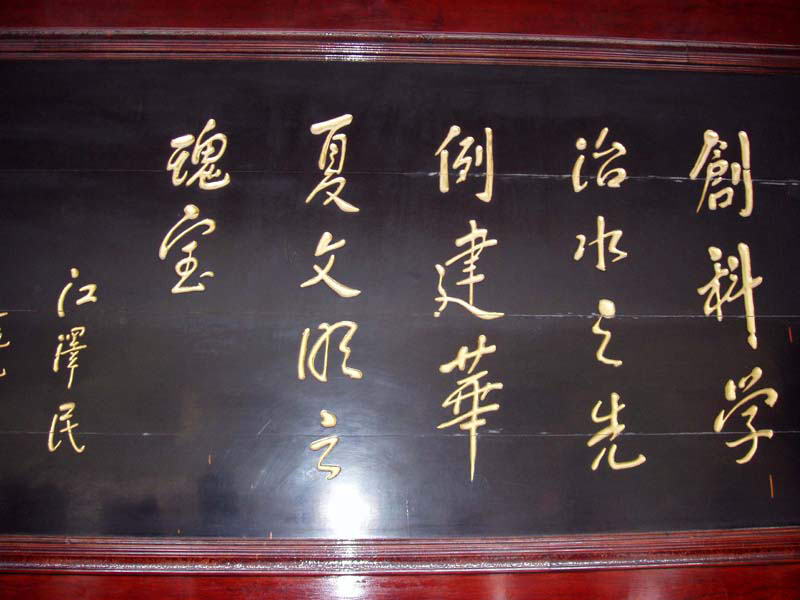 創科学
治水之先
例建華
夏文明之
瑰宝
江澤民